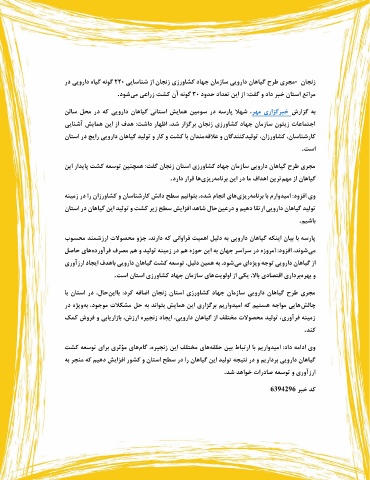 زنجان -مجری طرح گیاهان دارویی سازمان جهاد کشاورزی زنجان از شناسایی ۲۲۰ گونه گیاه دارویی در
مراتع استان خبر داد و گفت: از این تعداد حدود ۳۰ گونه آن کشت زراعی می‌شود.
به گزارش خبرگزاری مهر، شهلا پارسه در سومین همایش استانی گیاهان دارویی که در محل سالن
اجتماعات زیتون سازمان جهاد کشاورزی زنجان برگزار شد، اظهار داشت: هدف از این همایش آشنایی
کارشناسان، کشاورزان، تولیدکنندگان و علاقه‌مندان با کشت و کار و تولید گیاهان دارویی رایج در استان
است.
مجری طرح گیاهان دارویی سازمان جهاد کشاورزی استان زنجان گفت: همچنین توسعه کشت پایدار این
گیاهان از مهم‌ترین اهداف ما در این برنامه‌ریزی‌ها قرار دارد.
وی افزود: امیدوارم با برنامه‌ریزی‌های انجام شده، بتوانیم سطح دانش کارشناسان و کشاورزان را در زمینه
تولید گیاهان دارویی ارتقا دهیم و درعین‌حال شاهد افزایش سطح زیر کشت و تولید این گیاهان در استان
باشیم.
پارسه با بیان اینکه گیاهان دارویی به دلیل اهمیت فراوانی که دارند، جزو محصولات ارزشمند محسوب
می‌شوند، افزود: امروزه در سراسر جهان به این حوزه هم در زمینه تولید و هم مصرف فرآورده‌های حاصل
از گیاهان دارویی توجه ویژه‌ای می‌شود. به همین دلیل، توسعه کشت گیاهان دارویی باهدف ایجاد ارزآوری
و بهره‌برداری اقتصادی بالا، یکی از اولویت‌های سازمان جهاد کشاورزی استان است.
مجری طرح گیاهان دارویی سازمان جهاد کشاورزی استان زنجان اضافه کرد: بااین‌حال، در استان با
چالش‌هایی مواجه هستیم که امیدواریم برگزاری این همایش بتواند به حل مشکلات موجود، به‌ویژه در
زمینه فرآوری، تولید محصولات مختلف از گیاهان دارویی، ایجاد زنجیره ارزش، بازاریابی و فروش کمک
کند.
وی ادامه داد: امیدواریم با ارتباط بین حلقه‌های مختلف این زنجیره، گام‌های مؤثری برای توسعه کشت
گیاهان دارویی برداریم و در نتیجه تولید این گیاهان را در سطح استان و کشور افزایش دهیم که منجر به
ارزآوری و توسعه صادرات خواهد شد.
کد خبر 6394296